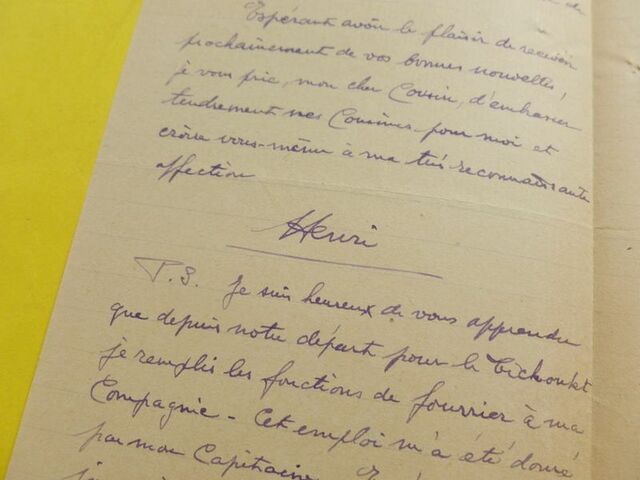 de
Espérant avoir le plaisir de recevoir
prochainement de vos bonnes nouvelles,
je vous prie, mon cher Cousin, d'embrasser
tendrement mes Cousines pour moi et
croire vous-même à ma très reconnaissante
affection
Henri
P.S. Je suis heureux de vous apprendre
que depuis notre départ pour le Tichoukt
je remplis les fonctions de fourrier à ma
Compagnie - Cet emploi m'a été donné
par mon Capitaine